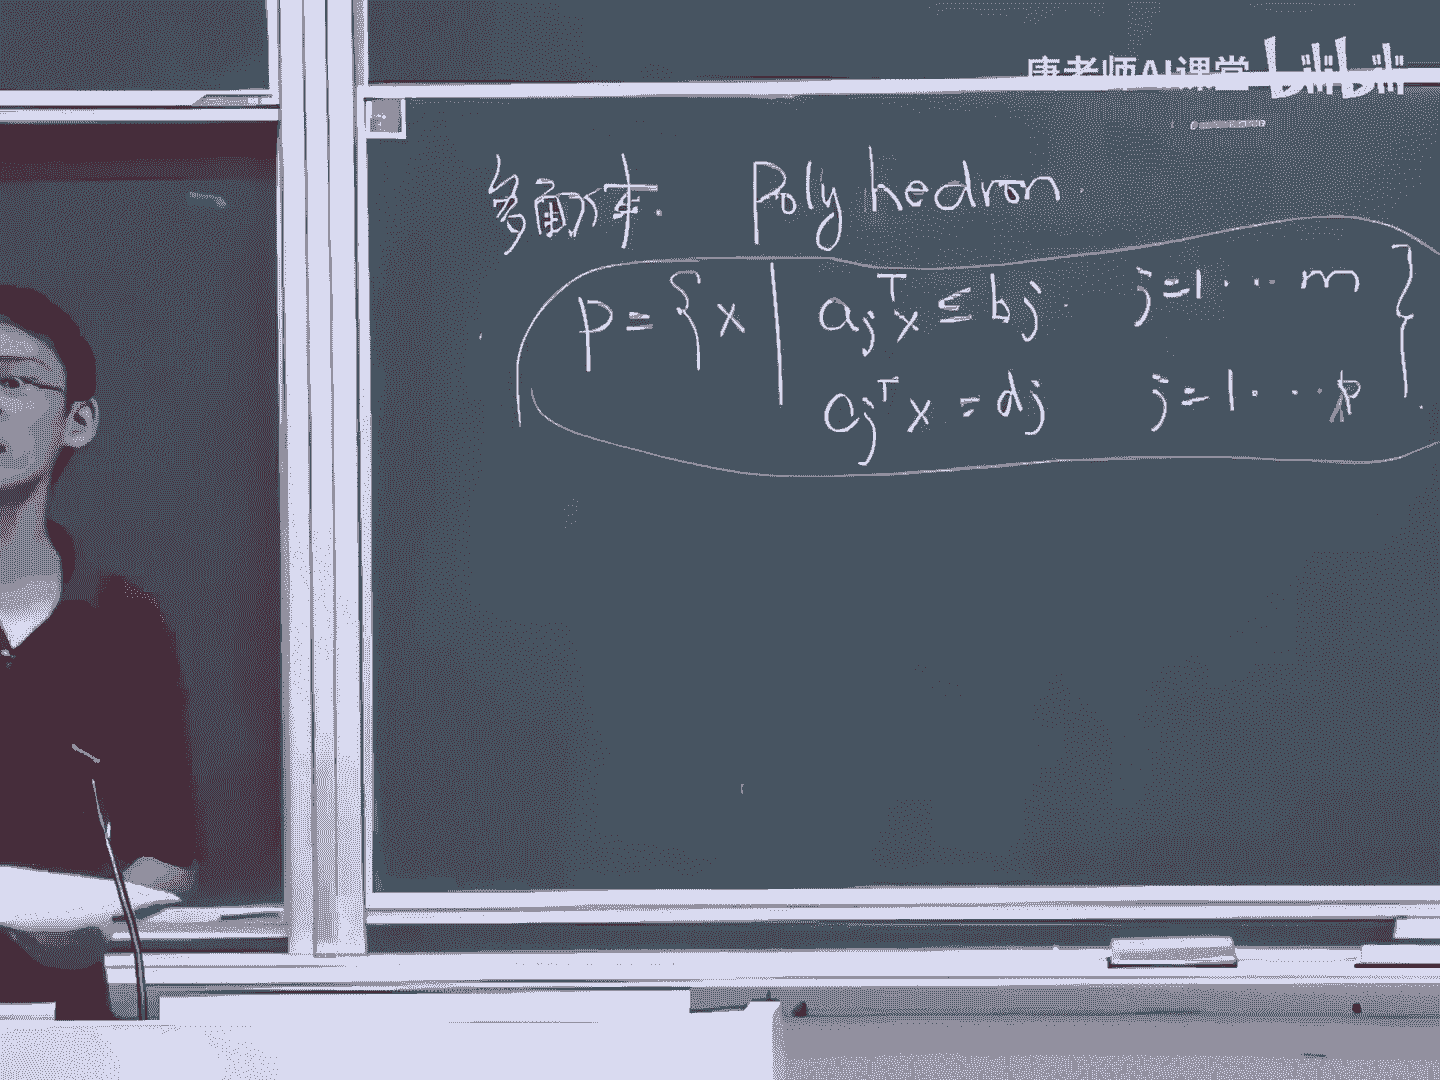 唐老师AI课堂 bilibili
多面体. Polyhedron.
P = { x | a_j^T x ≤ b_j. j=1...m }
a_j^T x = d_j j=1...p.